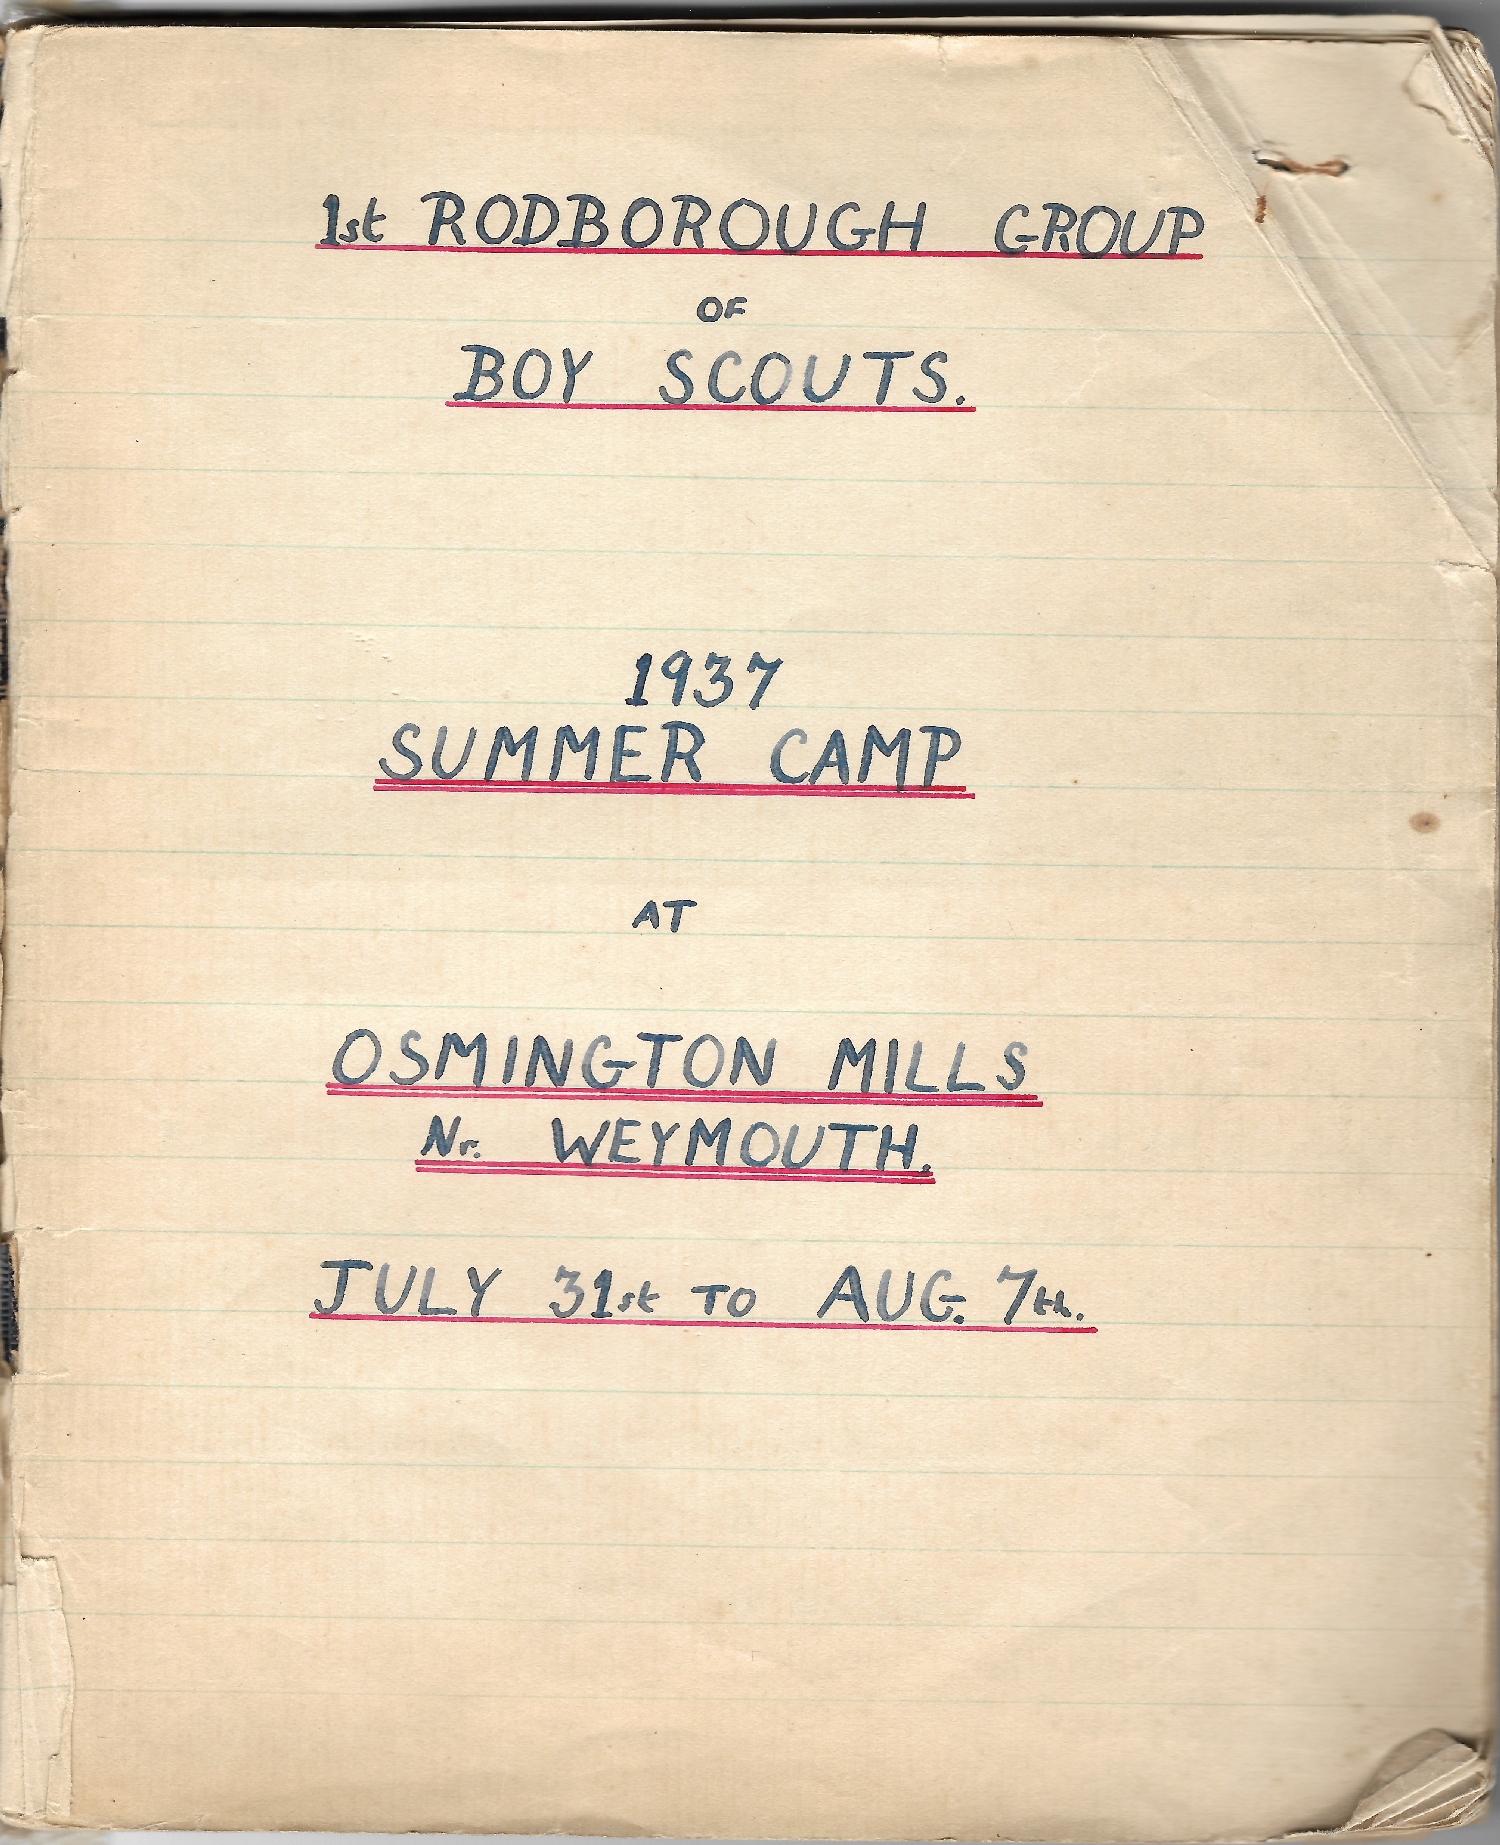 1st RODBOROUGH GROUP
OF
BOY SCOUTS.
1937
SUMMER CAMP
AT
OSMINGTON MILLS
Nr. WEYMOUTH.
JULY 31st TO AUG. 7th.